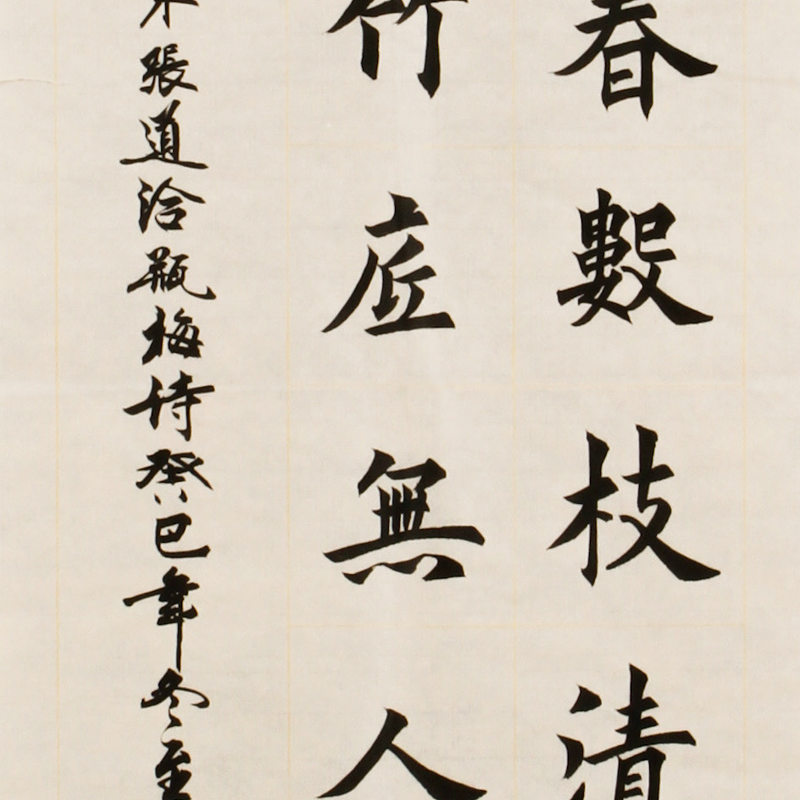 春數枝清
竹㡳無人
宋張道洽瓶梅詩癸巳年冬至